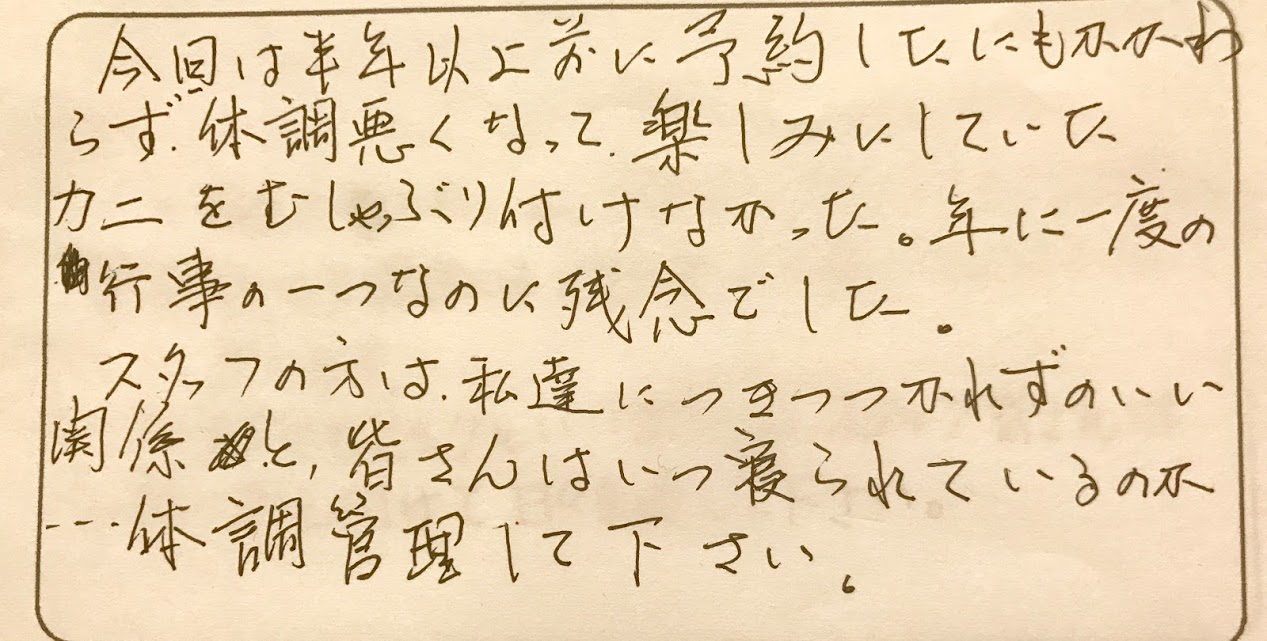 今回は半年以上前に予約したにもかかわ
らず、体調悪くなって、楽しみにしていた
カニをむしゃぶり付けなかった。年に一度の
行事の一つなのに残念でした。
スタッフの方は、私達につきつつかれずのいい
関係と、皆さんはいつ寝られているのか
…体調管理して下さい。